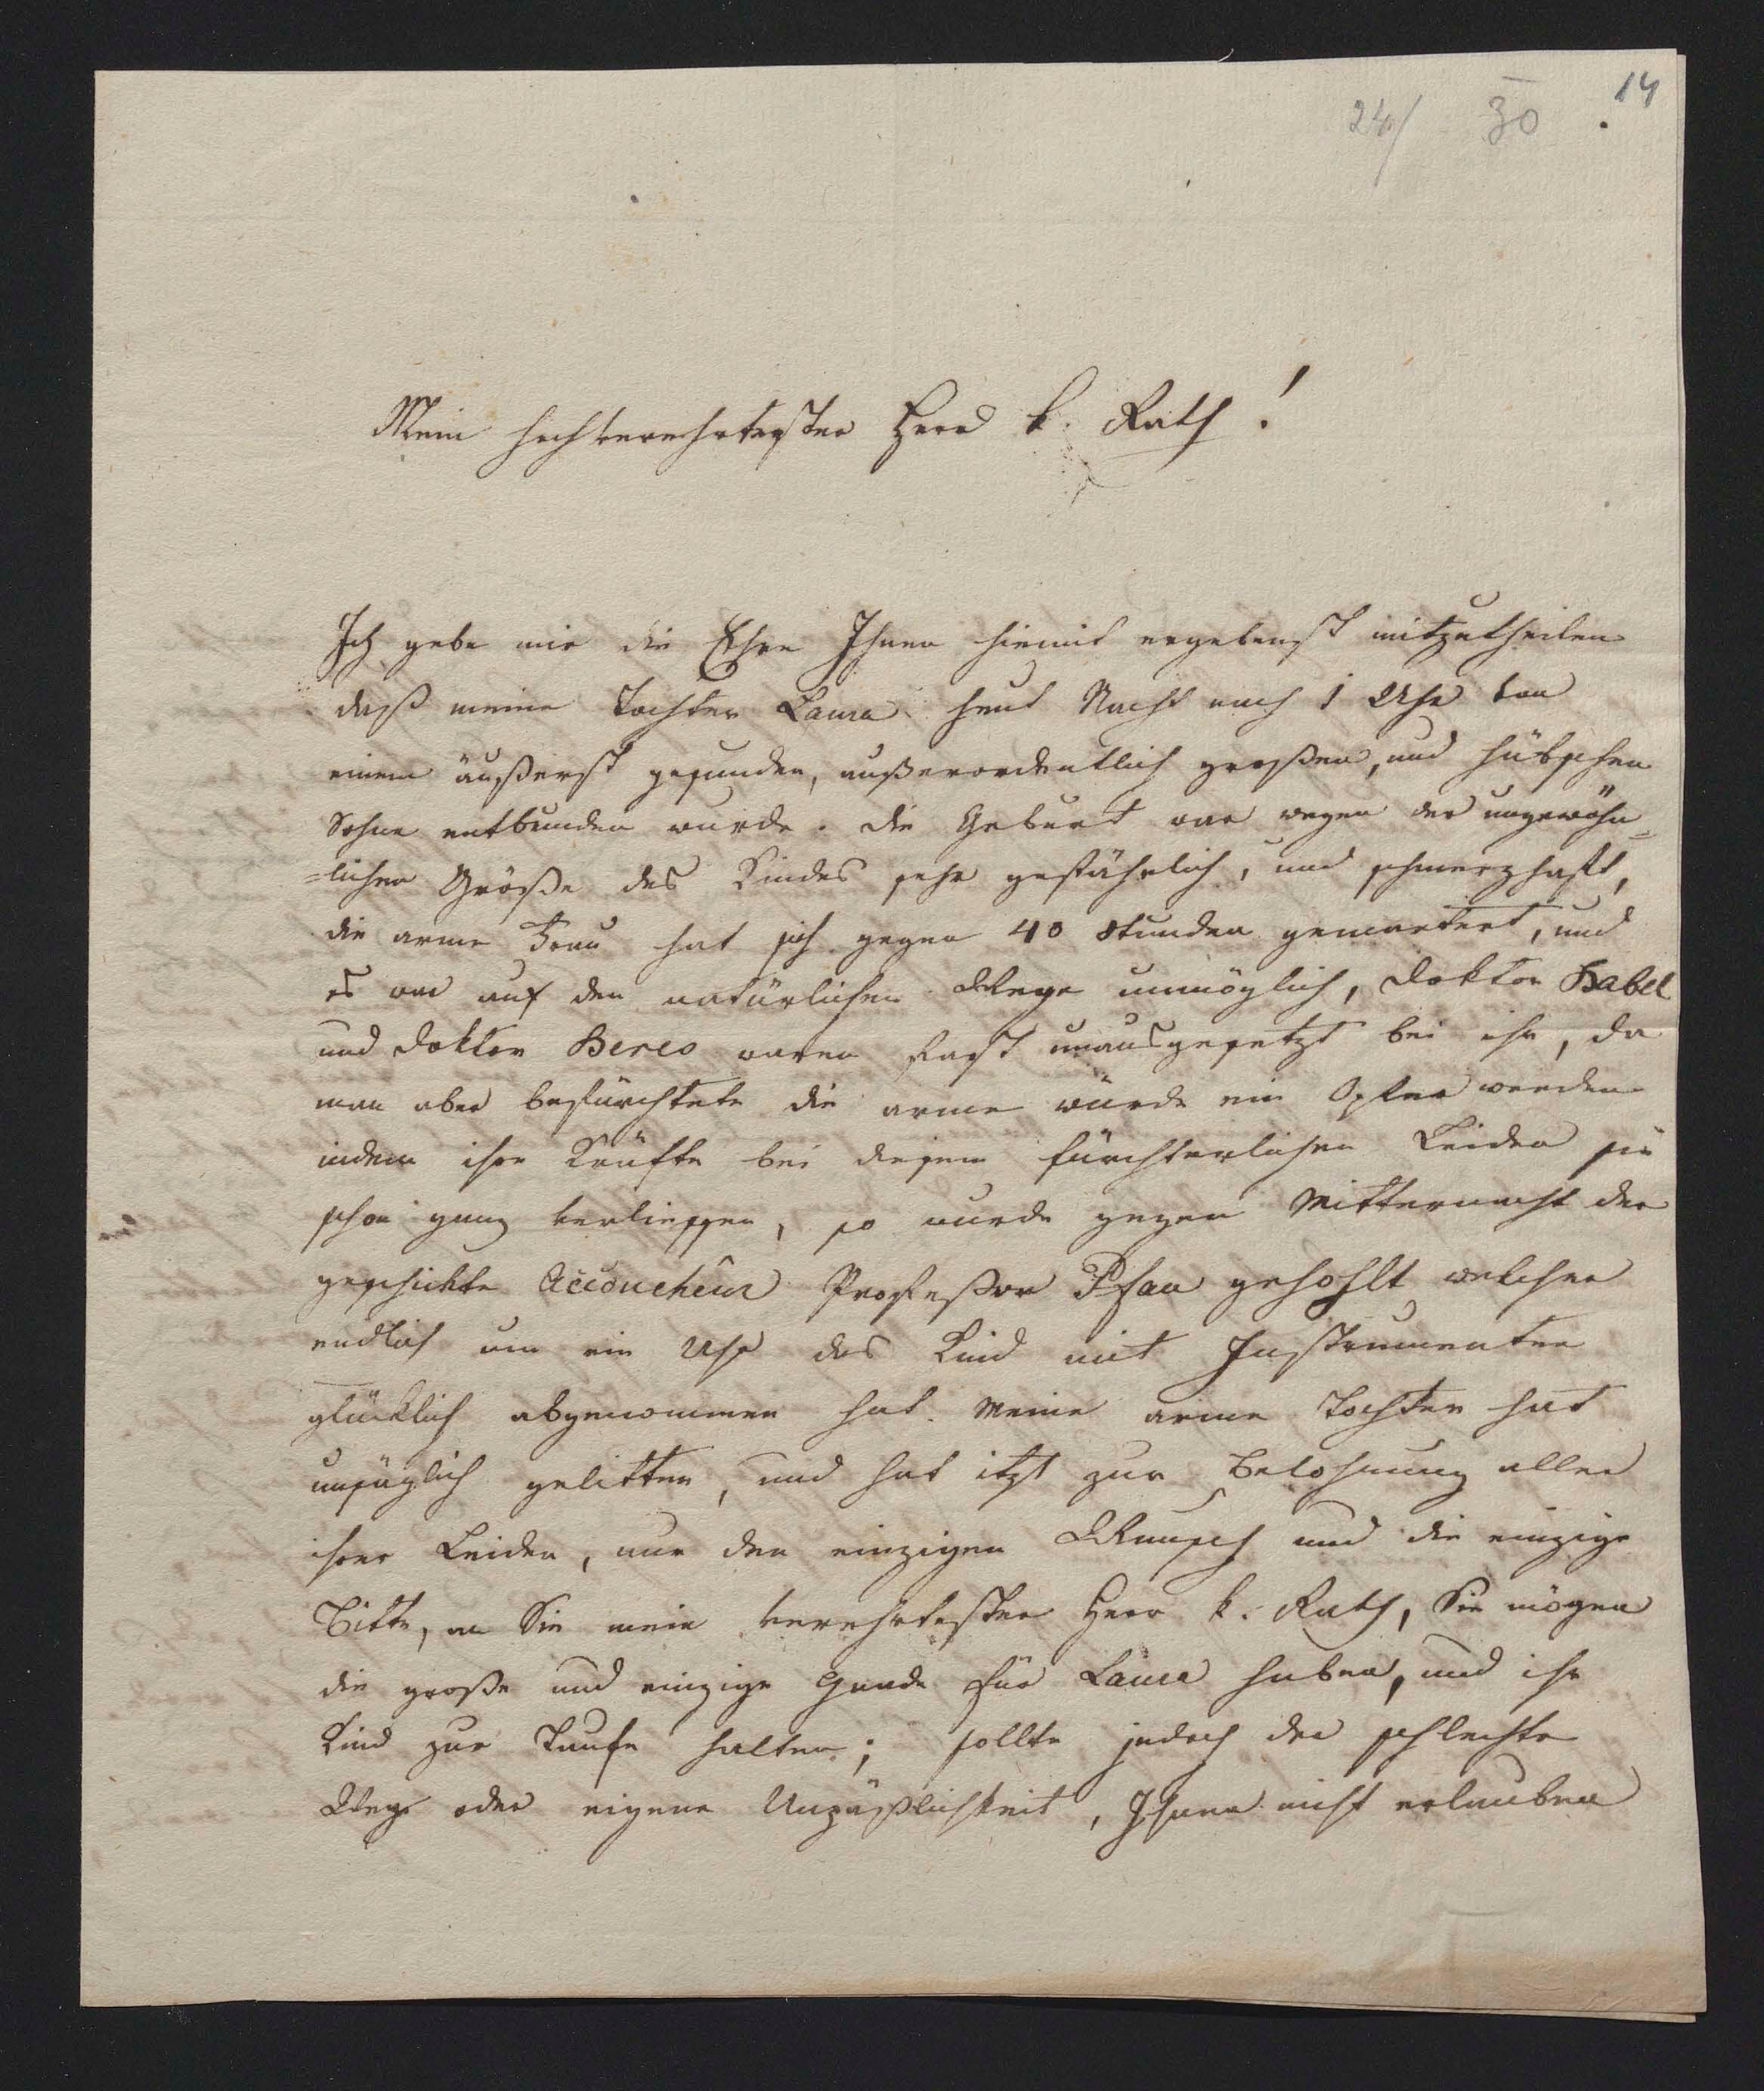 14
24/ 30
Mein hochverehrtester Herr k. Rath!
Ich gebe mir die Ehre Ihnen hiemit ergebenst mitzutheilen
daß meine Tochter Laura heut Nacht nach 1 Uhr von
einem äußerst gesunden, außerordentlich großen, und hübschen
Sohne entbunden wurde. Die Geburt war wegen der ungewöhn=
=lichen Größe des Kindes sehr gefährlich, und schmerzhaft,
die arme Frau hat sich gegen 40 Stunden gemartert, und
es war auf den natürlichen Wege unmöglich, Doktor Habel
und Doktor Beres waren fast unausgesetzt bei ihr, da
man aber befürchtete die arme würde ein Opfer werden
indem ihre Kräfte bei diesem fürchterlichen Leiden sie
schon ganz verliessen, so wurde gegen Mitternacht der
geschickte Accoucheur Professor Pfau gehohlt welcher
endlich um ein Uhr das Kind mit Instrumenten
glücklich abgenommen hat. Meine arme Tochter hat
unsäglich gelitten, und hat itzt zur Belohnung aller
ihrer Leiden, nur den einzigen Wunsch und die einzige
Bitte, an Sie mein verehrtester Herr k. Rath, Sie mögen
die große und einzige Gnade für Laura haben, und ihr
Kind zur Taufe halten; sollte jedoch der schlechte
Weg oder eigene Unpäßlichkeit, Ihnen nicht erlauben